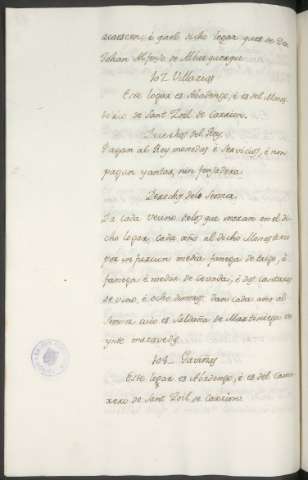 acaescen, é que el dicho logar que es de Don
Johan Alfonso de Alburquerque
107 Villarius
Este logar es Abadengo, é es del Mones-
terio de Sant Zoil de Carrion.
Derechos del Rey.
Pagan al Rey monedas é servicios, é non
pagan yantar, nin fonsadera.
Derechos de la Señora
Da cada vecino de los que moran en el di-
cho logar, cada año al dicho Monesterio
por infurcion media fanega de trigo, é
fanega é media de cevada, é dos cantaras
de vino, é ocho dineros, dan cada año al
Señor cuio es Saldaña de Martiniega en
veinte maravedis.
108 Gaviños
Este logar es Abadengo, é es del Camarero
de Sant Zoil de Carrion